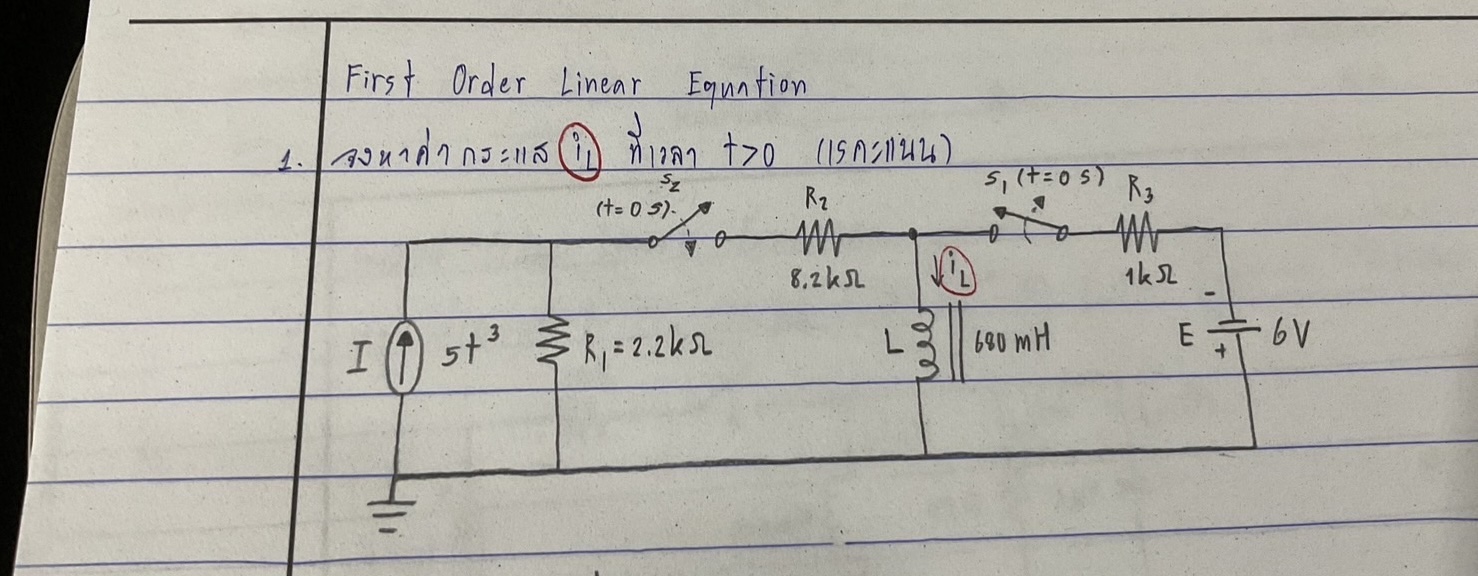 First Order Linear Equation
1. จงหาค่ากระแส iL ที่เวลา t>0 (15คะแนน)
S2
(t=0 s)
S1 (t=0 s)
R2
R3
8.2kΩ
iL
1kΩ
-
I
5t³
R1=2.2kΩ
L
680 mH
E
+
6V